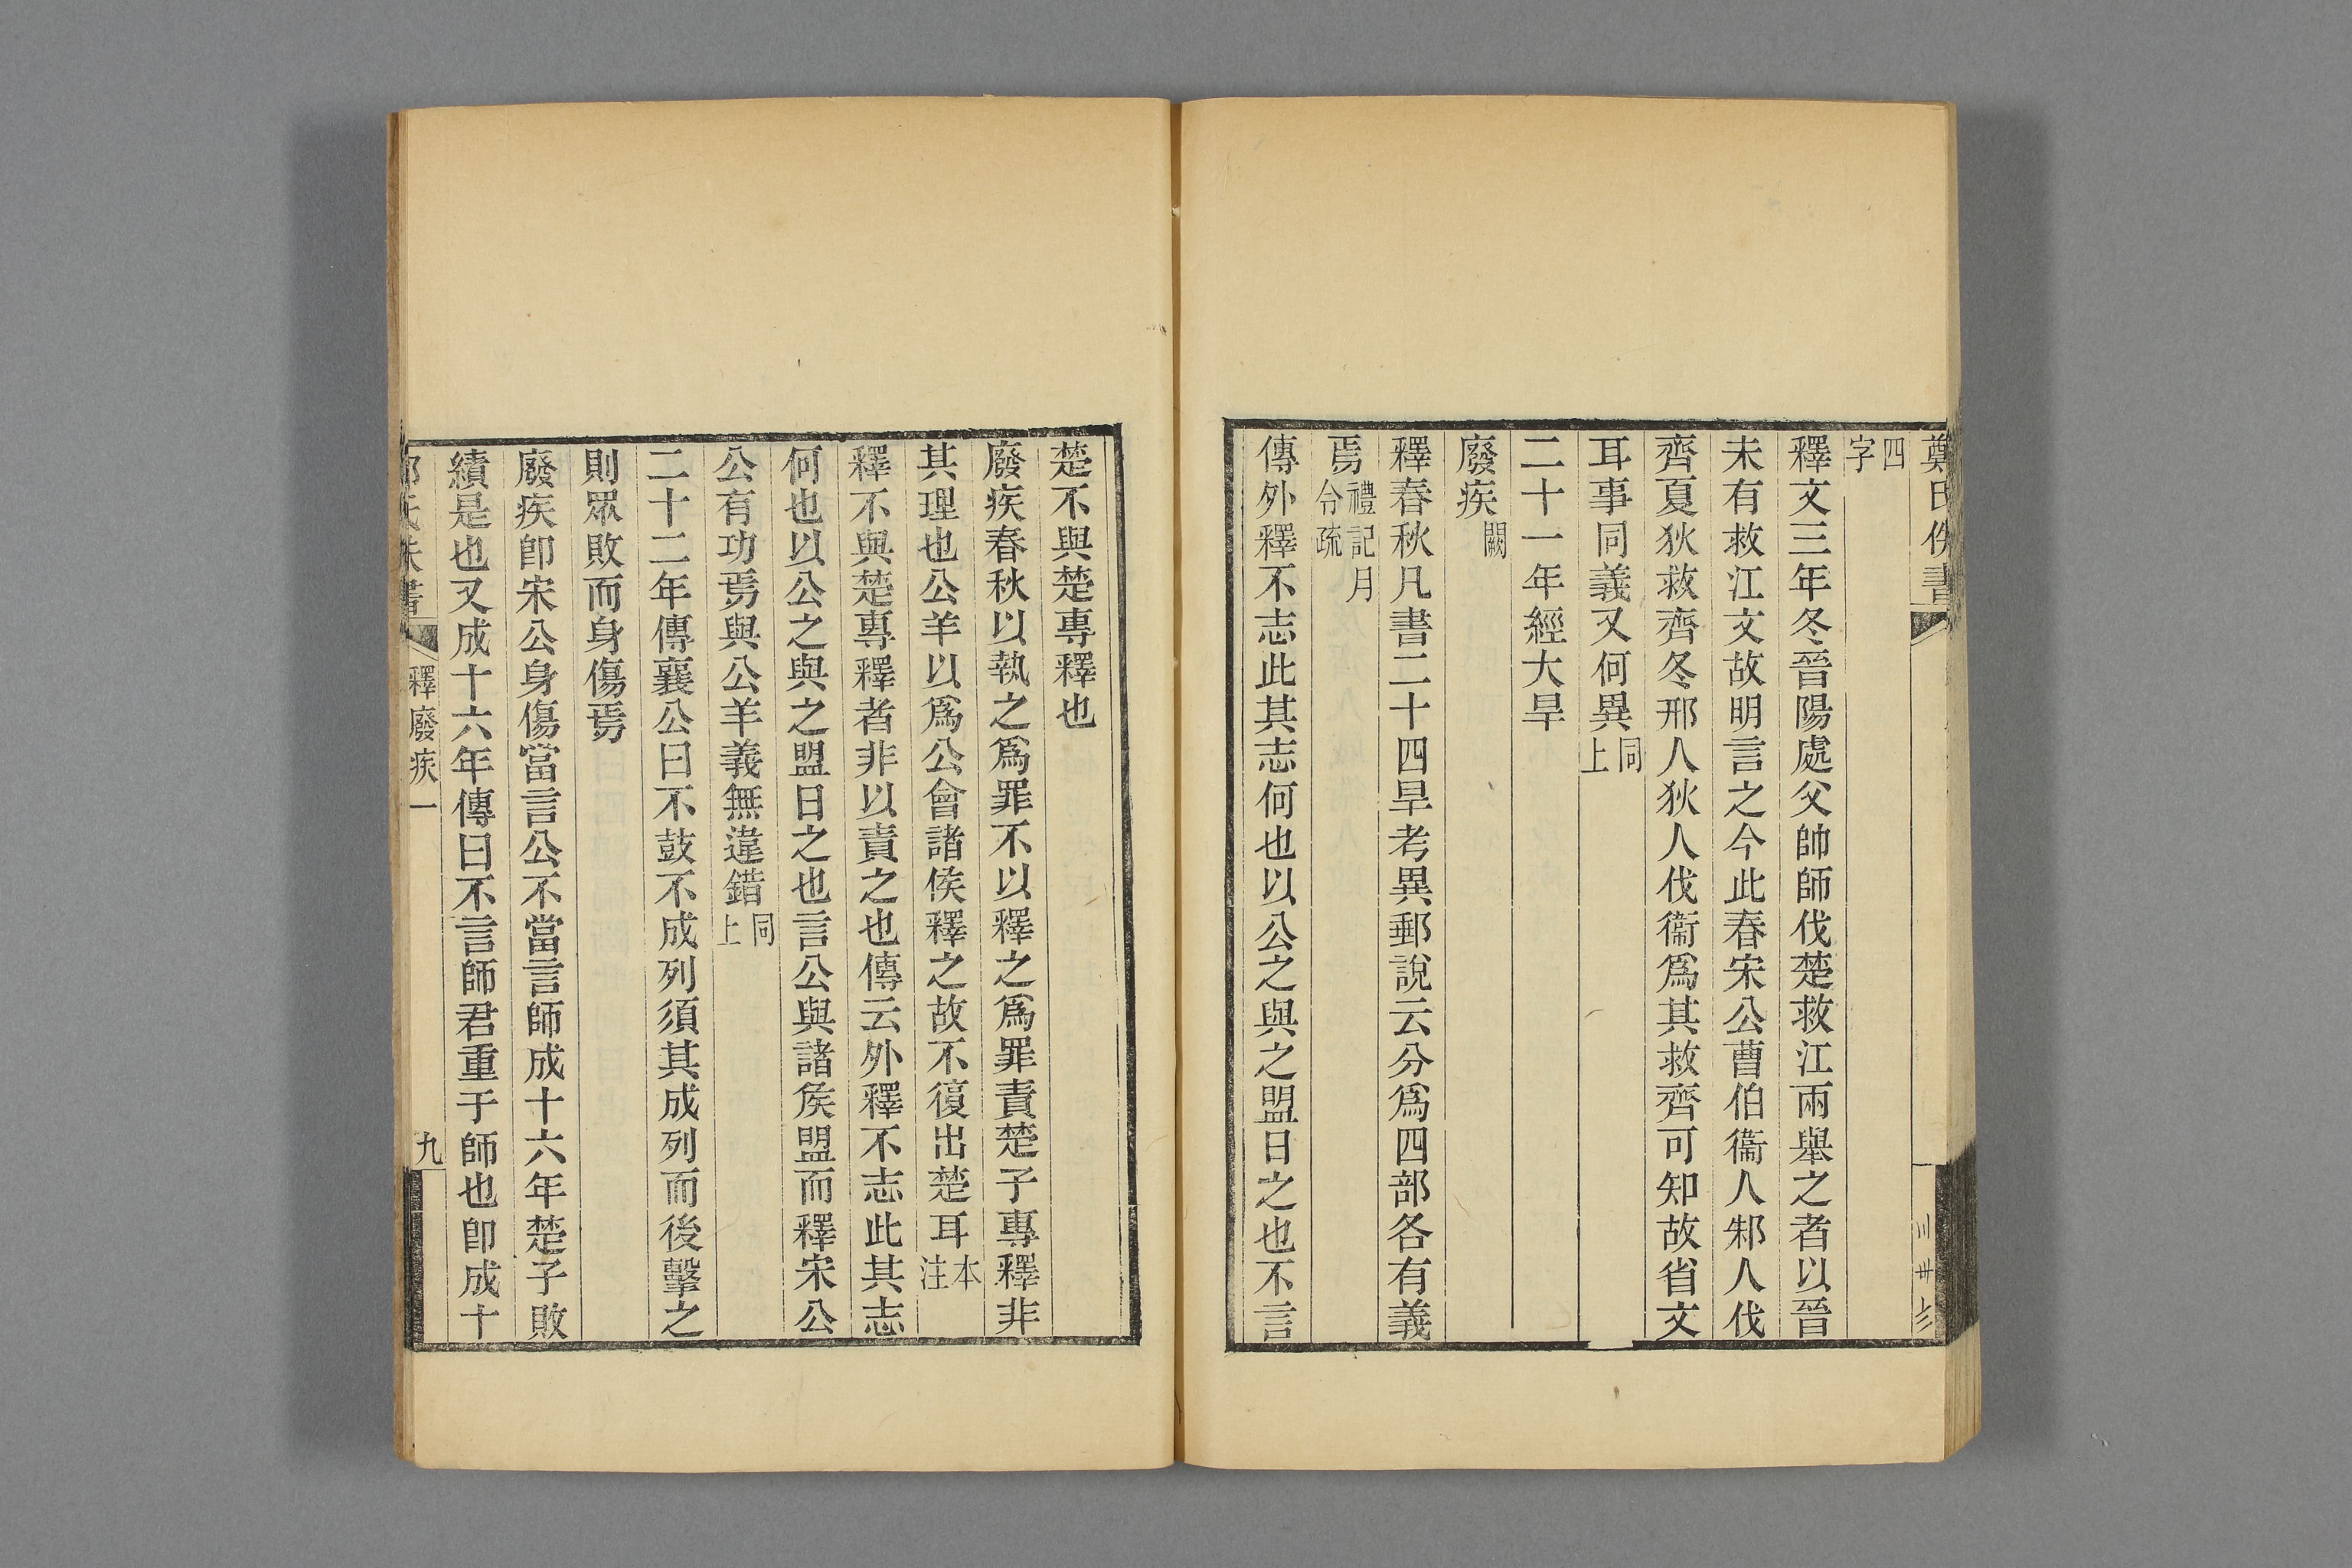 鄭氏佚書
四字
釋文三年冬晉陽處父帥師伐楚救江兩舉之者以晉
未有救江文故明言之今此春宋公曹伯衞人邾人伐
齊夏狄救齊冬邢人狄人伐衞爲其救齊可知故省文
耳事同義又何異同上
二十一年經大旱
廢疾闕
釋春秋凡書二十四旱考異郵說云分爲四部各有義
焉禮記月令疏
傳外釋不志此其志何也以公之與之盟日之也不言
楚不與楚專釋也
廢疾春秋以執之爲罪不以釋之爲罪責楚子專釋非
其理也公羊以爲公會諸侯釋之故不復出楚耳本注
釋不與楚專釋者非以責之也傳云外釋不志此其志
何也以公之與之盟日之也言公與諸侯盟而釋宋公
公有功焉與公羊義無違錯同上
二十二年傳襄公曰不鼓不成列須其成列而後擊之
則眾敗而身傷焉
廢疾卽宋公身傷當言公不當言師成十六年楚子敗
績是也又成十六年傳曰不言師君重于師也卽成十
鄭氏佚書
釋廢疾一
九